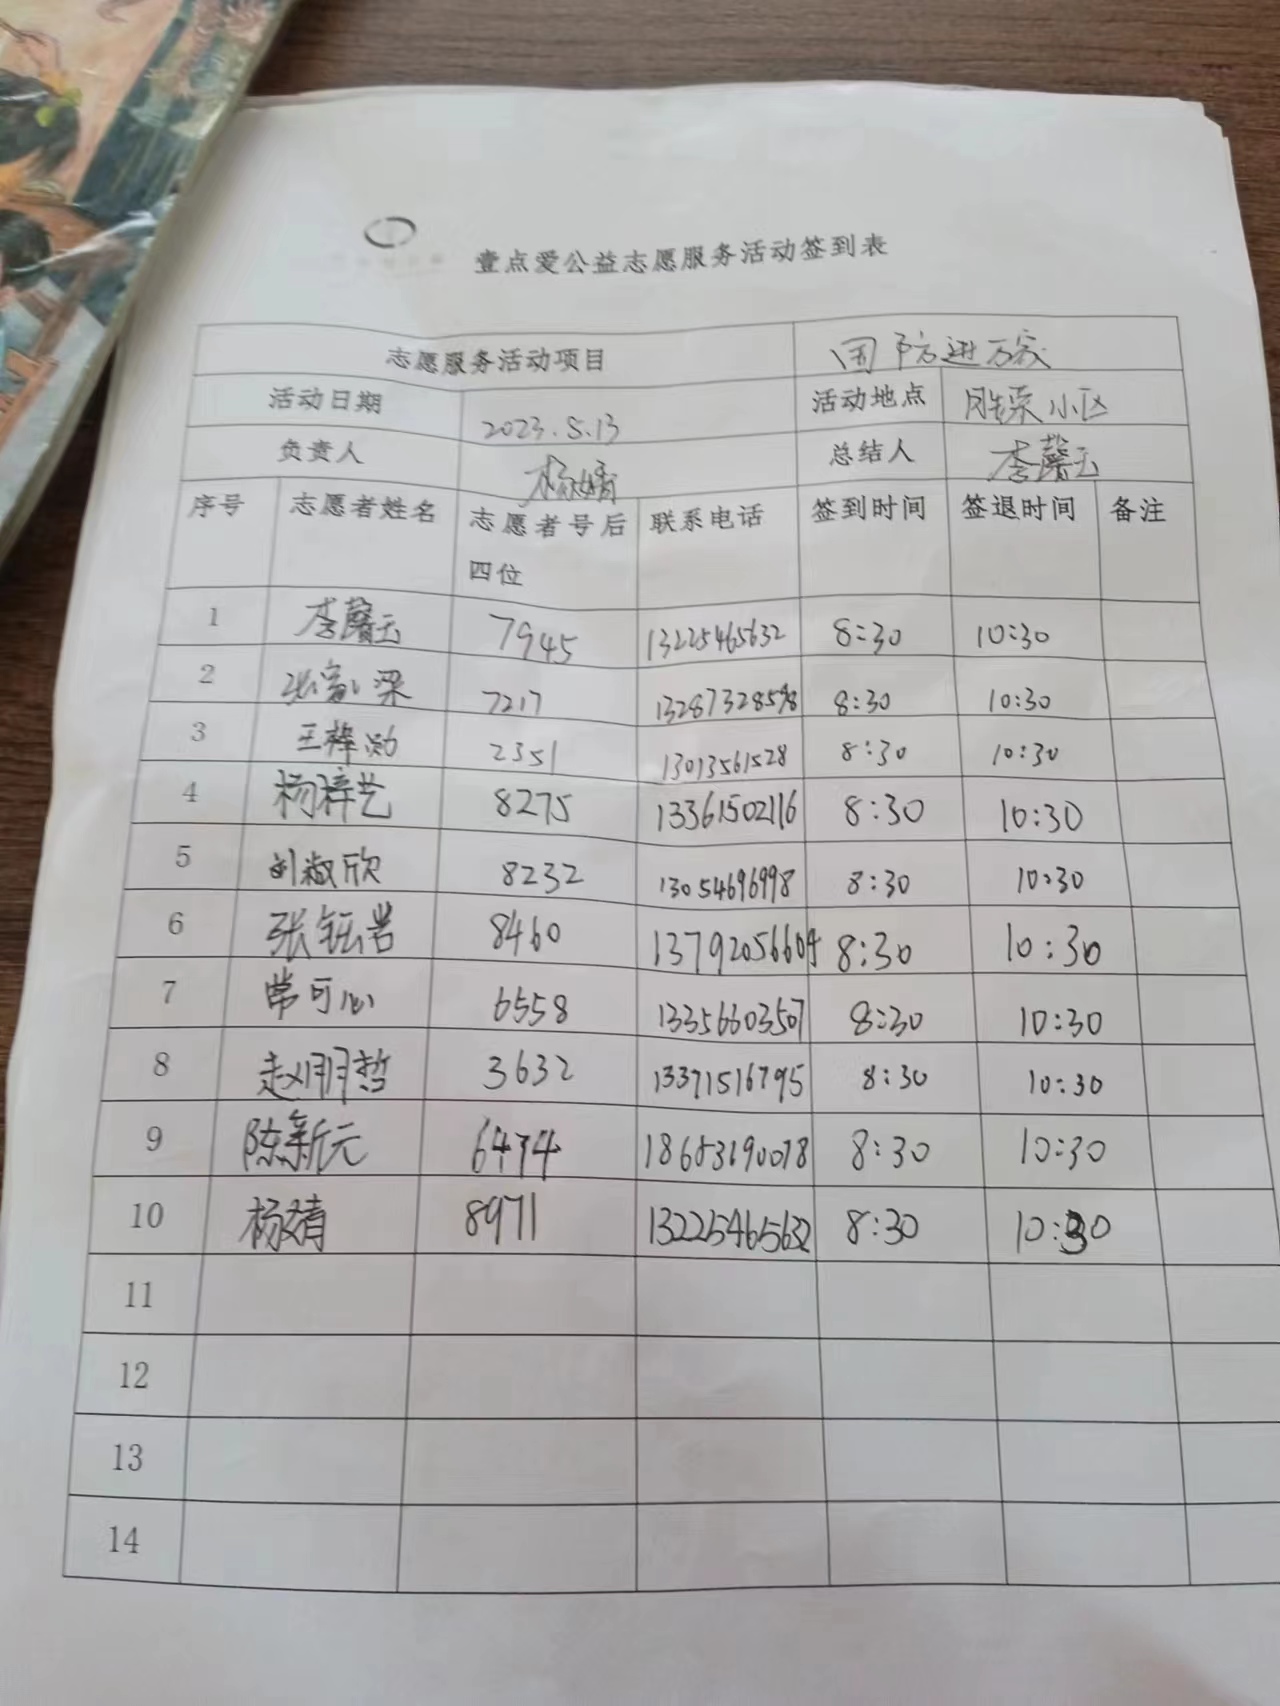 壹点爱公益志愿服务活动签到表
志愿服务活动项目 国防进万家
活动日期 2023.5.13 活动地点 小区
负责人 杨婧 总结人 李馨云
序号 志愿者姓名 志愿者号后四位 联系电话 签到时间 签退时间 备注
1 李馨云 7945 13225465632 8:30 10:30
2 梁 7217 13287328598 8:30 10:30
3 王梓勋 2351 13013561528 8:30 10:30
4 杨梓艺 8275 13361502116 8:30 10:30
5 刘淑欣 8232 13054696998 8:30 10:30
6 张钰岩 8460 13792056604 8:30 10:30
7 常可心 6558 13356603507 8:30 10:30
8 赵明哲 3632 13371516795 8:30 10:30
9 陈新元 6474 18653190078 8:30 10:30
10 杨婧 8971 13225465632 8:30 10:30
11
12
13
14